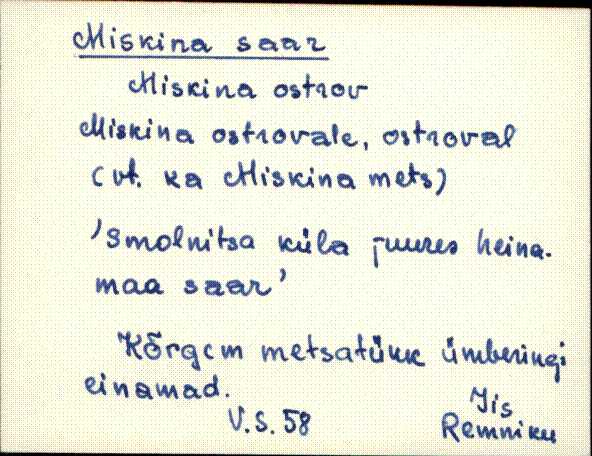 Miskina saar
Miskina ostrov
Miskina ostrovale, ostroval
(vt. ka Miskina mets)
'Smolnitsa küla juures heina-
maa saar'
Kõrgem metsatükk ümberingi
einamad.
V.S. 58
Iis
Remniku